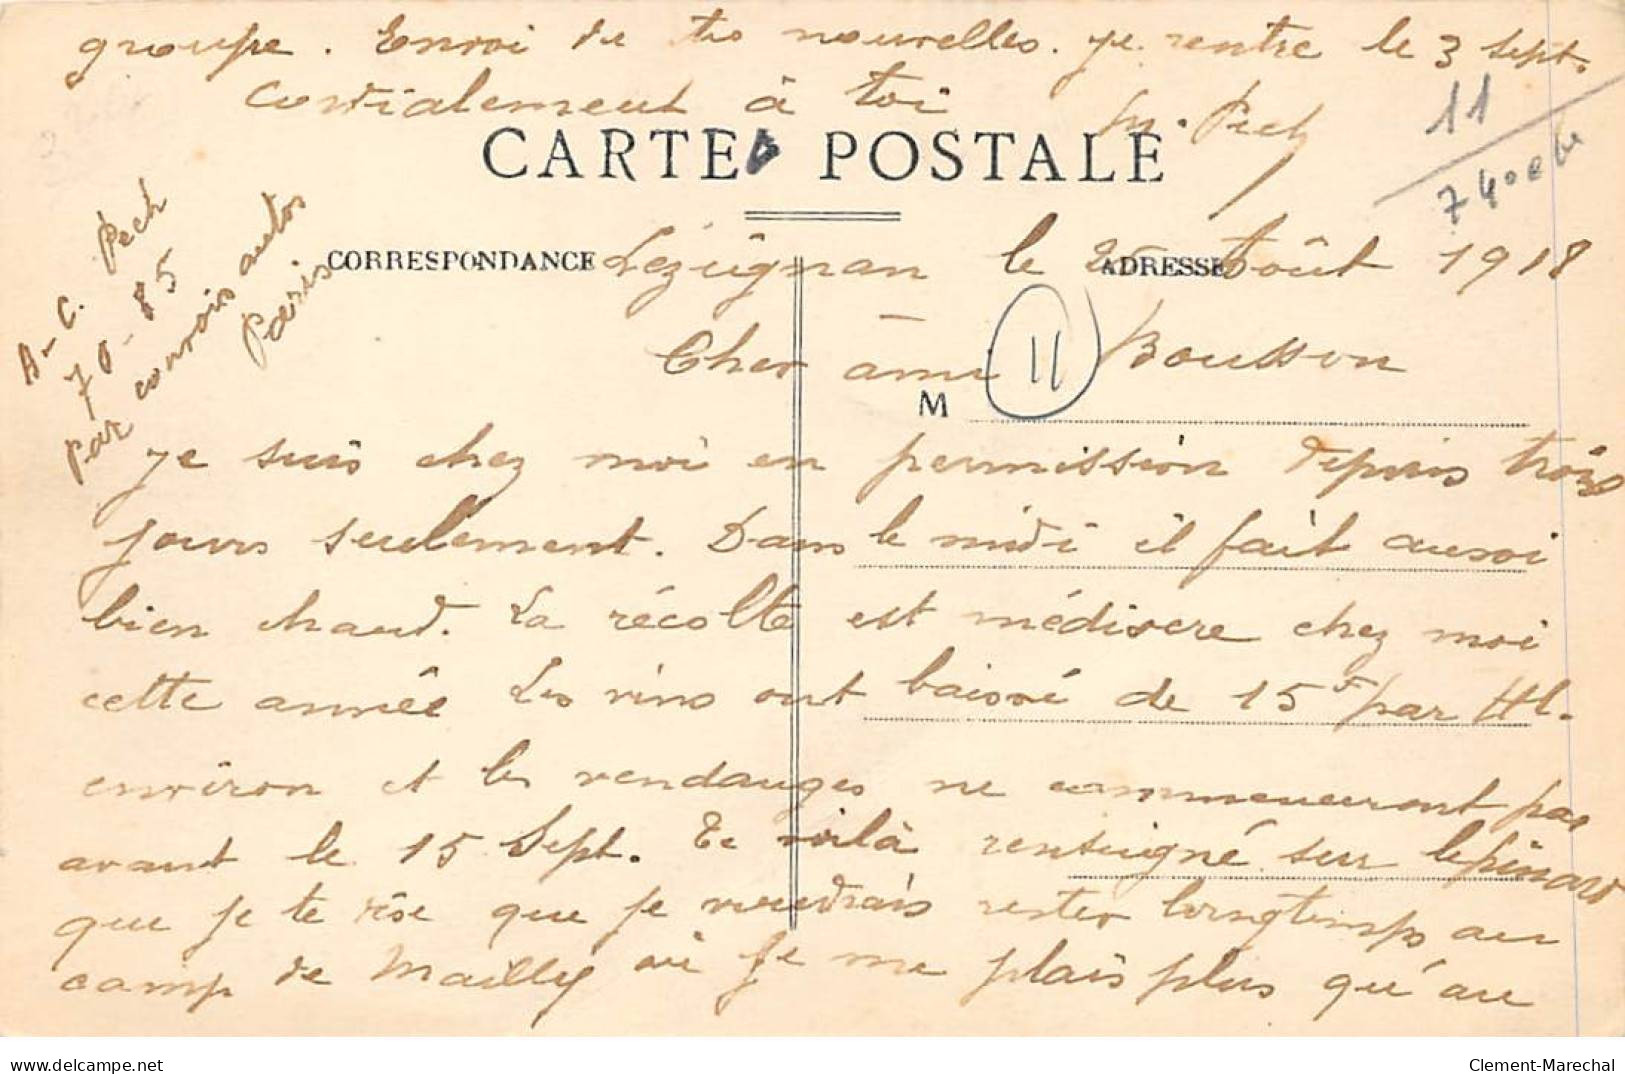 groupe. Envoi de tes nouvelles. je rentre le 3 sept.
Cordialement à toi
M. Pech
11
CARTE POSTALE
A-C. Pech
70-85
par convois autos
Paris
CORRESPONDANCE
ADRESSE
Lézignan le 25 Août 1918
Cher ami Bousson
11
M
je suis chez moi en permission depuis trois
jours seulement. Dans le midi il fait aussi
bien chaud. La récolte est médiocre chez moi
cette année Les vins ont baissé de 15 F par Hl.
environ et les vendanges ne commenceront pas
avant le 15 Sept. Te voilà renseigné sur le pinard
que je te dise que je voudrais rester longtemps au
camp de Mailly où je me plais plus qu'au
delcampe.net
Clement-Marechal